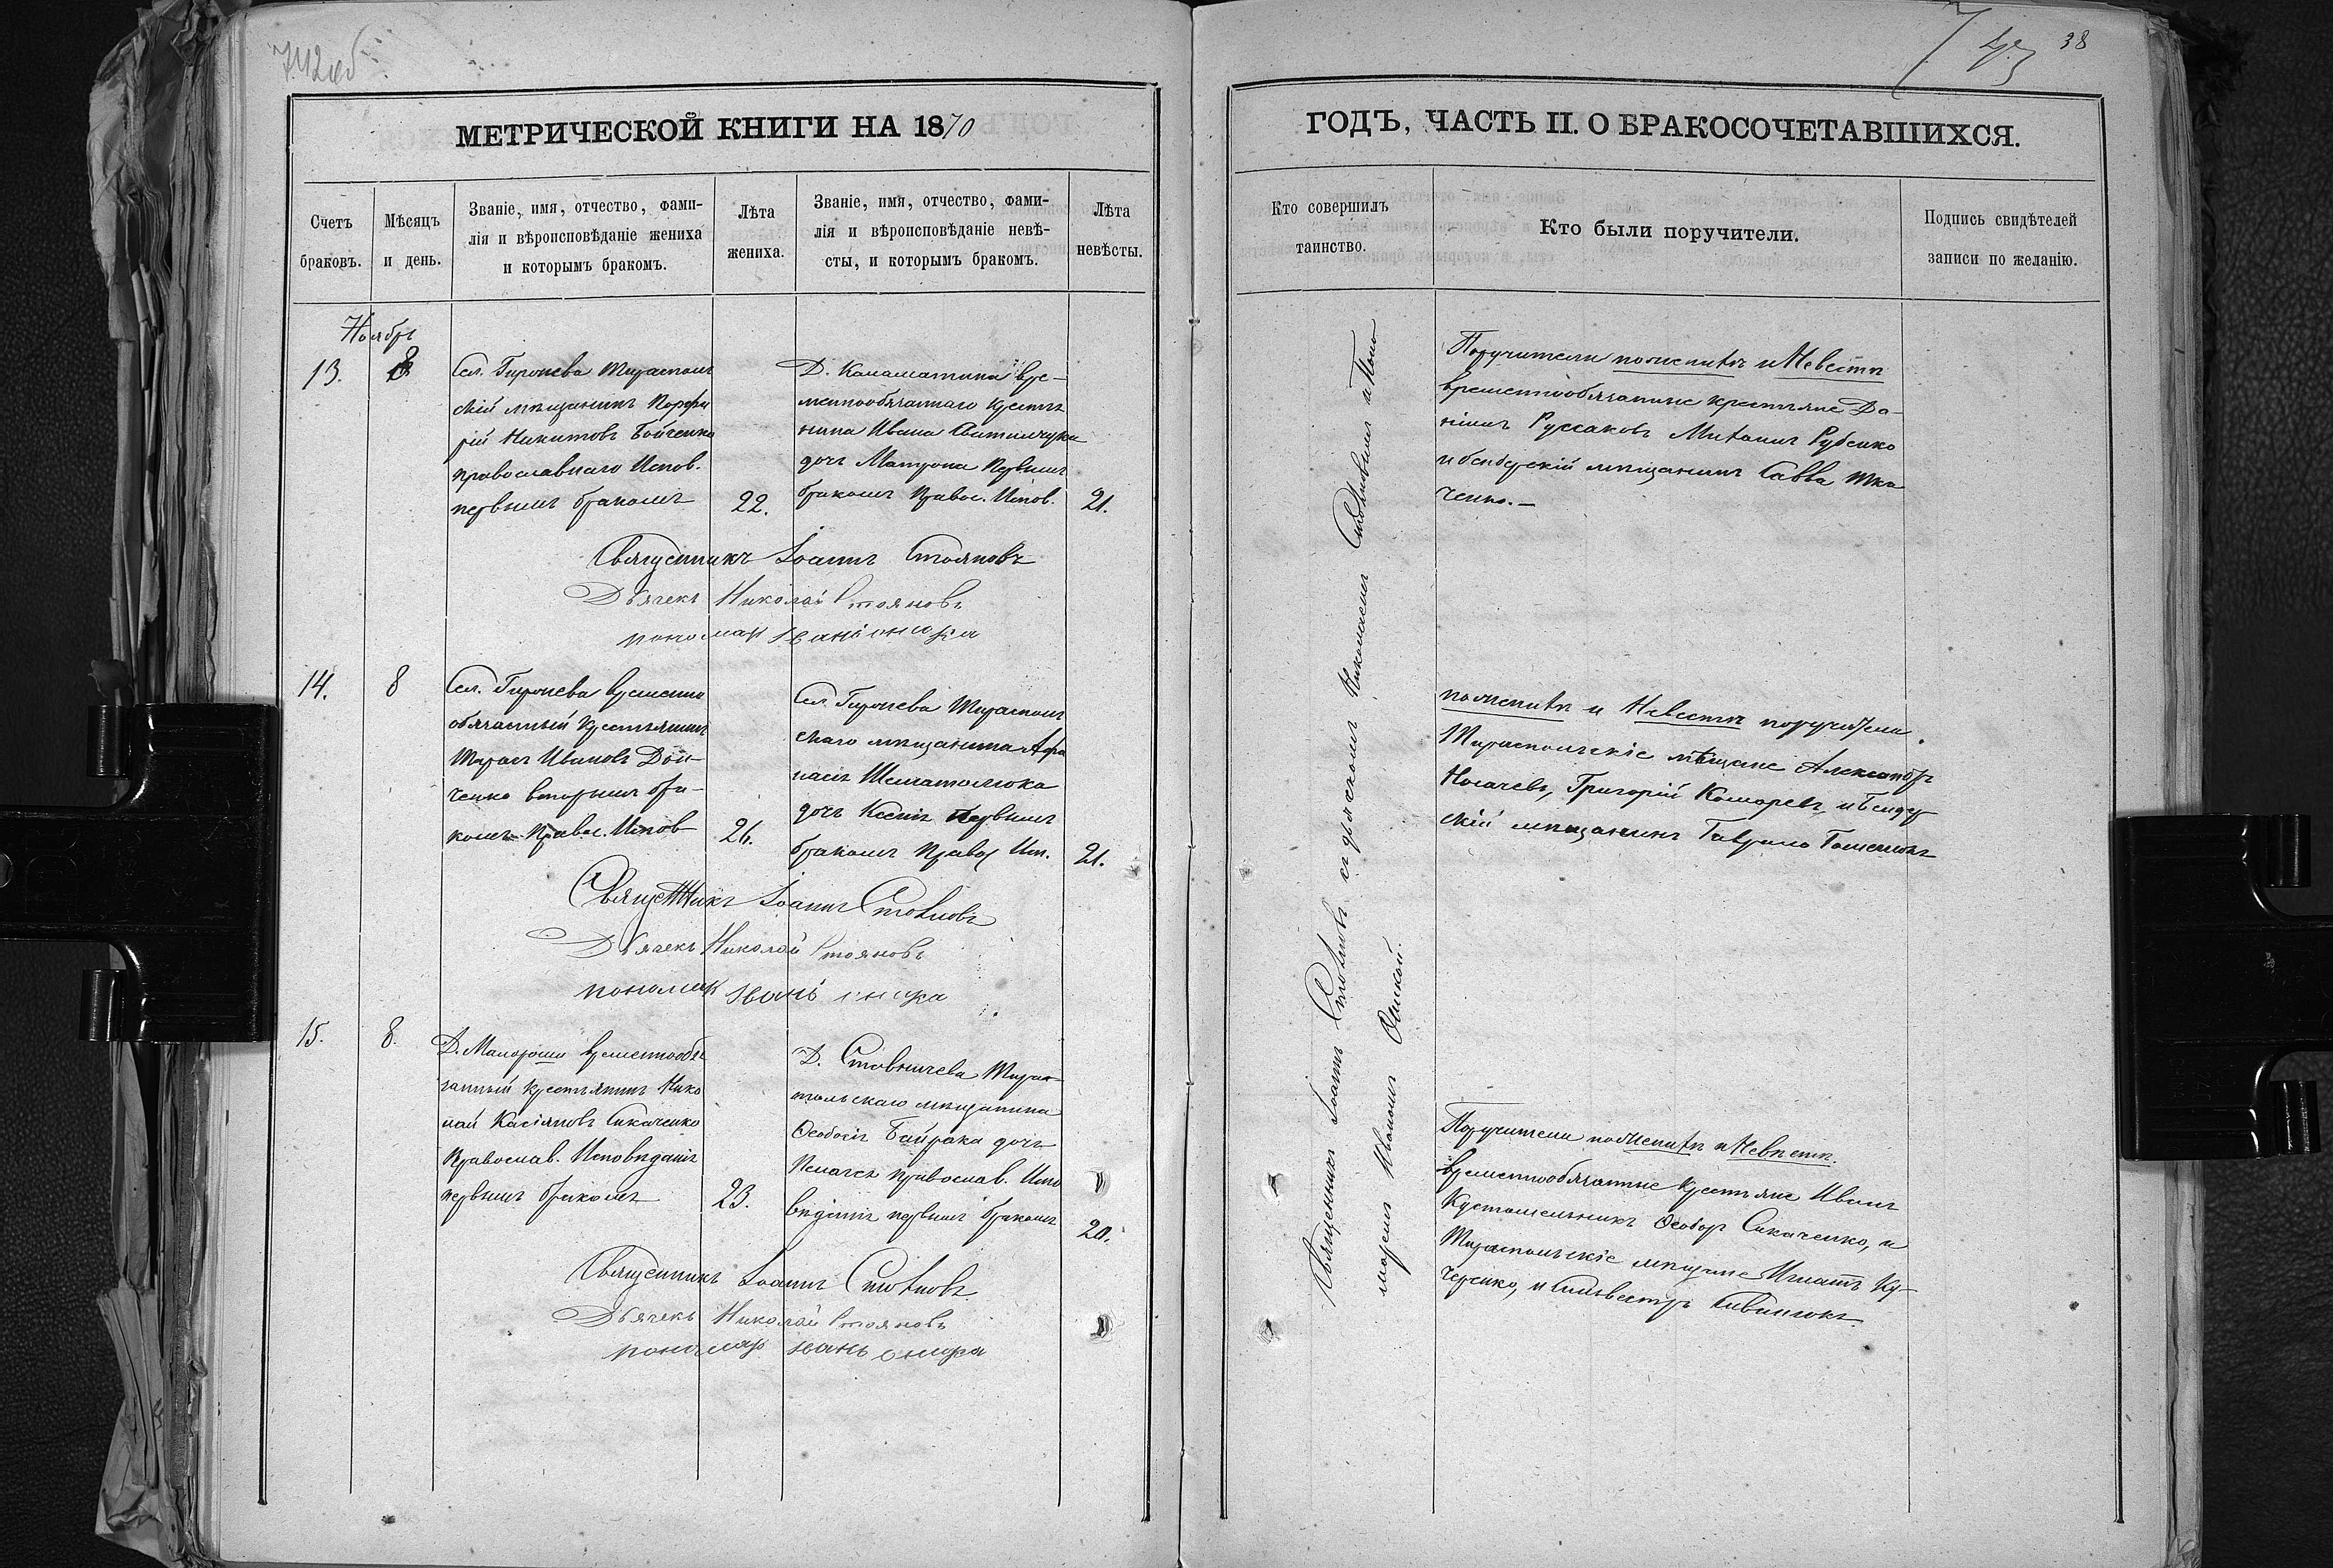 38
МЕТРИЧЕСКОЙ КНИГИ НА 1870
Счетъ
браковъ.
Мѣсяцъ
и день.
Званіе, имя, отчество, фами-
лія и вѣроисповѣданіе жениха
и которымъ бракомъ.
Лѣта
жениха.
Званіе, имя, отчество, фами-
лія и вѣроисповѣданіе невѣ-
сты, и которымъ бракомъ.
Лѣта
невѣсты.
Ноябрь
13.
8
Сел. Гиржева Тираполь
скій мѣщанинъ Порфи
рій Никитовъ Бойченко
православнаго Испов.
первымъ бракомъ
22.
Д. вре-
меннообязаннаго крестья
нина Ивана
дочь Матрона первымъ
бракомъ Правос. Испов.
21.
Священникъ Іоаннъ Стояновъ
Дьячекъ Николай Стояновъ
пономарь
14.
8
Сел. Гиржева временно
обязанный крестьянинъ
Ивановъ Дой-
ченко вторымъ бра-
комъ Правос. Испов
26.
Сел. Гиржева Тираполь
скаго мѣщанина Афа
насія
дочь Ксенія первымъ
бракомъ Правос Исп.
21.
Священникъ Іоаннъ Стояновъ
Дьячекъ Николай Стояновъ
пономар
15.
8.
Д. временнообя
занный крестьянинъ Нико
лай Касіяновъ Сикаченко
Православ. Исповѣданія
первымъ бракомъ
23.
Д. Тирас-
польскаго мѣщанина
Ѳеодосія Байрака дочь
православ. Испо
вѣданія первымъ бракомъ
20.
Священникъ Іоаннъ Стояновъ
Дьячекъ Николай Стояновъ
пономар
ГОДЪ, ЧАСТЬ II. О БРАКОСОЧЕТАВШИХСЯ.
Кто совершилъ
таинство.
Кто были поручители.
Подпись свидѣтелей
записи по желанію.
Священникъ Іоаннъ Стояновъ съ дьячкомъ Николаемъ Стояновымъ и Поно
маремъ Иваномъ
Поручители по женихѣ и Невѣстѣ
временнообязанные крестьяне Да-
ніилъ Руссаковъ Рубенко
и бендерскій мѣщанинъ Савва Тка
ченко.-
по женихѣ и Невѣстѣ поручители
Тираспольскіе мѣщане Александръ
Носачевъ, Григорій Комаревъ, и Бендер
скій мѣщанинъ Гаврило
Поручители по женихѣ и Невѣстѣ.
временнообязанные крестьяне Иванъ
Ѳеодоръ Сикаченко, и
Тираспольскіе мѣщане Игнатъ Ку-
черенко, и Сильвестръ